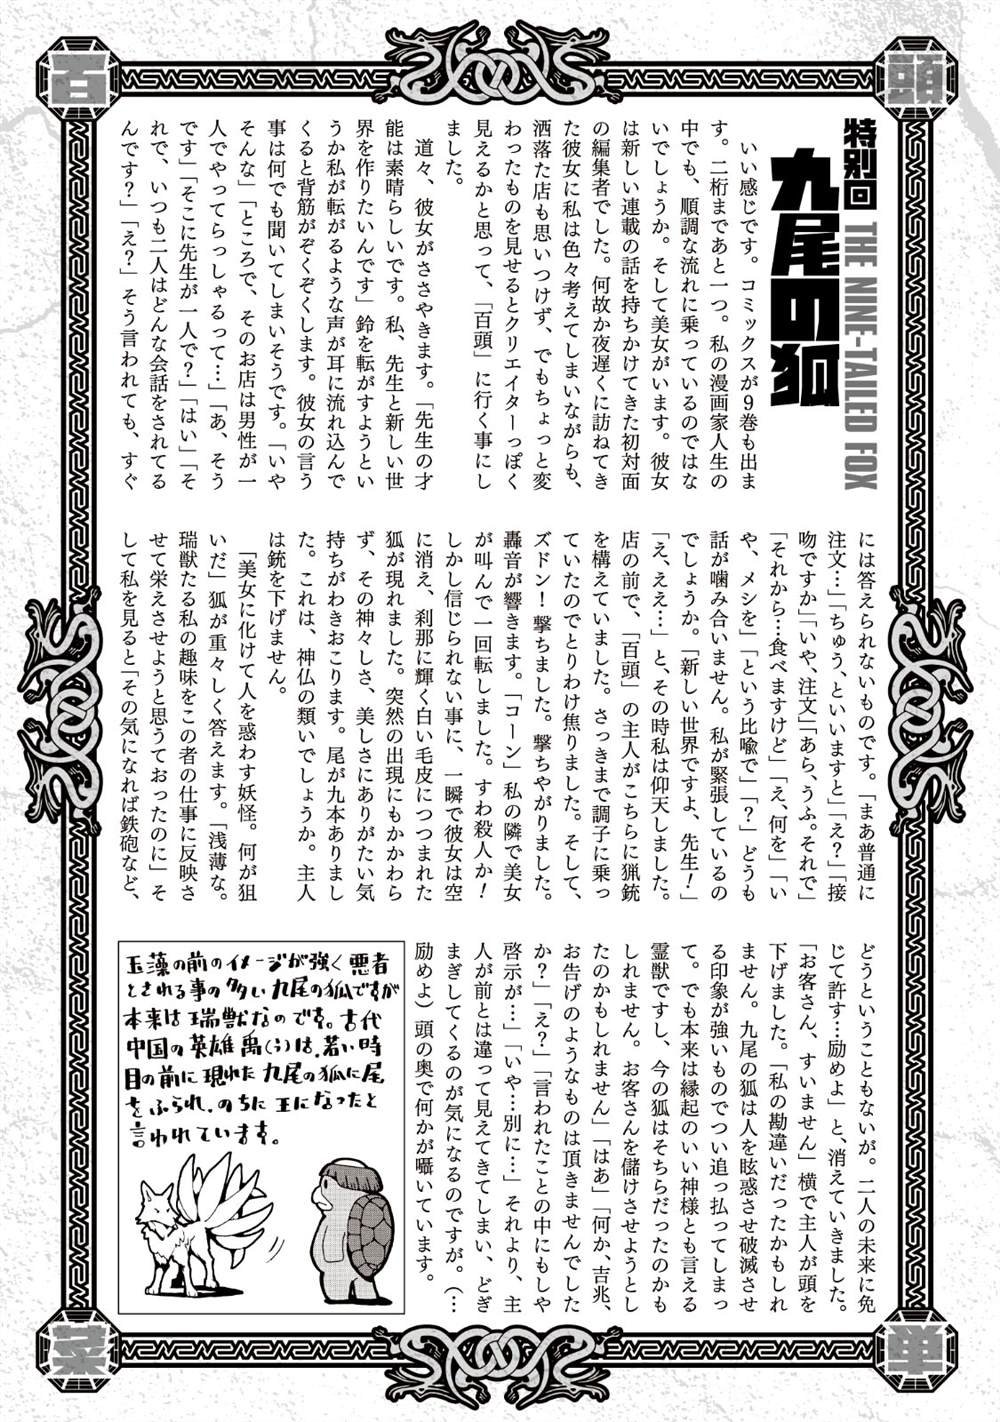 百頭
菜単
特別回
九尾の狐
THE NINE-TAILED FOX
いい感じです。コミックスが9巻も出ま
す。二桁まであと一つ。私の漫画家人生の
中でも、順調な流れに乗っているのではな
いでしょうか。そして美女がいます。彼女
は新しい連載の話を持ちかけてきた初対面
の編集者でした。何故か夜遅くに訪ねてき
た彼女に私は色々考えてしまいながらも、
洒落た店も思いつけず、でもちょっと変
わったものを見せるとクリエイターっぽく
見えるかと思って、「百頭」に行く事にし
ました。
道々、彼女がささやきます。「先生の才
能は素晴らしいです。私、先生と新しい世
界を作りたいんです」鈴を転がすようとい
うか私が転がるような声が耳に流れ込んで
くると背筋がぞくぞくします。彼女の言う
事は何でも聞いてしまいそうです。「いや
そんな」「ところで、そのお店は男性が一
人でやってらっしゃるって…」「あ、そう
です」「そこに先生が一人で?」「はい」「そ
れで、いつも二人はどんな会話をされてる
んです?」「え?」そう言われても、すぐ
には答えられないものです。「まあ普通に
注文…」「ちゅう、といいますと」「え?」「接
吻ですか」「いや、注文」「あら、うふ。それで」
「それから…食べますけど」「え、何を」「い
や、メシを」「という比喩で」「?」どうも
話が噛み合いません。私が緊張しているの
でしょうか。「新しい世界ですよ、先生!」
「え、ええ…」と、その時私は仰天しました。
店の前で、「百頭」の主人がこちらに猟銃
を構えていました。さっきまで調子に乗っ
ていたのでとりわけ焦りました。そして、
ズドン!撃ちました。撃ちやがりました。
轟音が響きます。「コーン」私の隣で美女
が叫んで一回転しました。すわ殺人か!
しかし信じられない事に、一瞬で彼女は空
に消え、刹那に輝く白い毛皮につつまれた
狐が現れました。突然の出現にもかかわら
ず、その神々しさ、美しさにありがたい気
持ちがわきおこります。尾が九本ありまし
た。これは、神仏の類いでしょうか。主人
は銃を下げません。
「美女に化けて人を惑わす妖怪。何が狙
いだ」狐が重々しく答えます。「浅薄な。
瑞獣たる私の趣味をこの者の仕事に反映さ
せて栄えさせようと思うておったのに」そ
して私を見ると「その気になれば鉄砲など、
どうということもないが。二人の未来に免
じて許す…励めよ」と、消えていきました。
「お客さん、すいません」横で主人が頭を
下げました。「私の勘違いだったかもしれ
ません。九尾の狐は人を眩惑させ破滅させ
る印象が強いものでつい追っ払ってしまっ
て。でも本来は縁起のいい神様とも言える
霊獣ですし、今の狐はそちらだったのかも
しれません。お客さんを儲けさせようとし
たのかもしれません」「はあ」「何か、吉兆、
お告げのようなものは頂きませんでした
か?」「え?」「言われたことの中にもしや
啓示が…」「いや…別に…」それより、主
人が前とは違って見えてきてしまい、どぎ
まぎしてくるのが気になるのですが。(…
励めよ)頭の奥で何かが囁いています。
玉藻の前のイメージが強く悪者
とされる事の多い九尾の狐ですが
本来は瑞獣なのです。古代
中国の英雄禹(う)は、若い時
目の前に現れた九尾の狐に尾
をふられ、のちに王になったと
言われています。